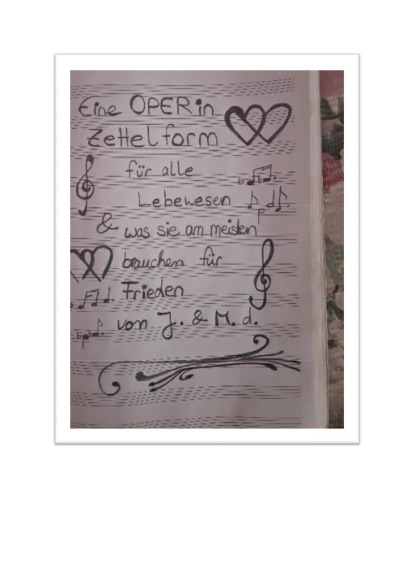 Eine OPER in
Zettelform
für alle
Lebewesen
& was sie am meisten
brauchen für
Frieden
von J. & M. d.